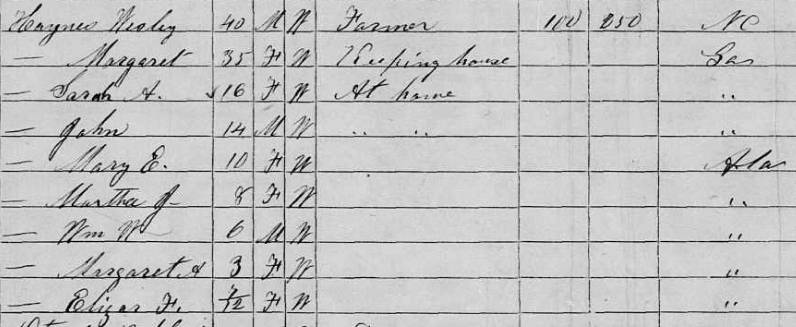 Haynes Wesley 40 M W Farmer 100 250 NC
— Margaret 35 F W Keeping house Ga
— Sarah A. 16 F W At home "
— John 14 M W " " "
— Mary E. 10 F W Ala
— Martha J 8 F W "
— Wm W 6 M W "
— Margaret A 3 F W "
— Elizar F. /12 F W "